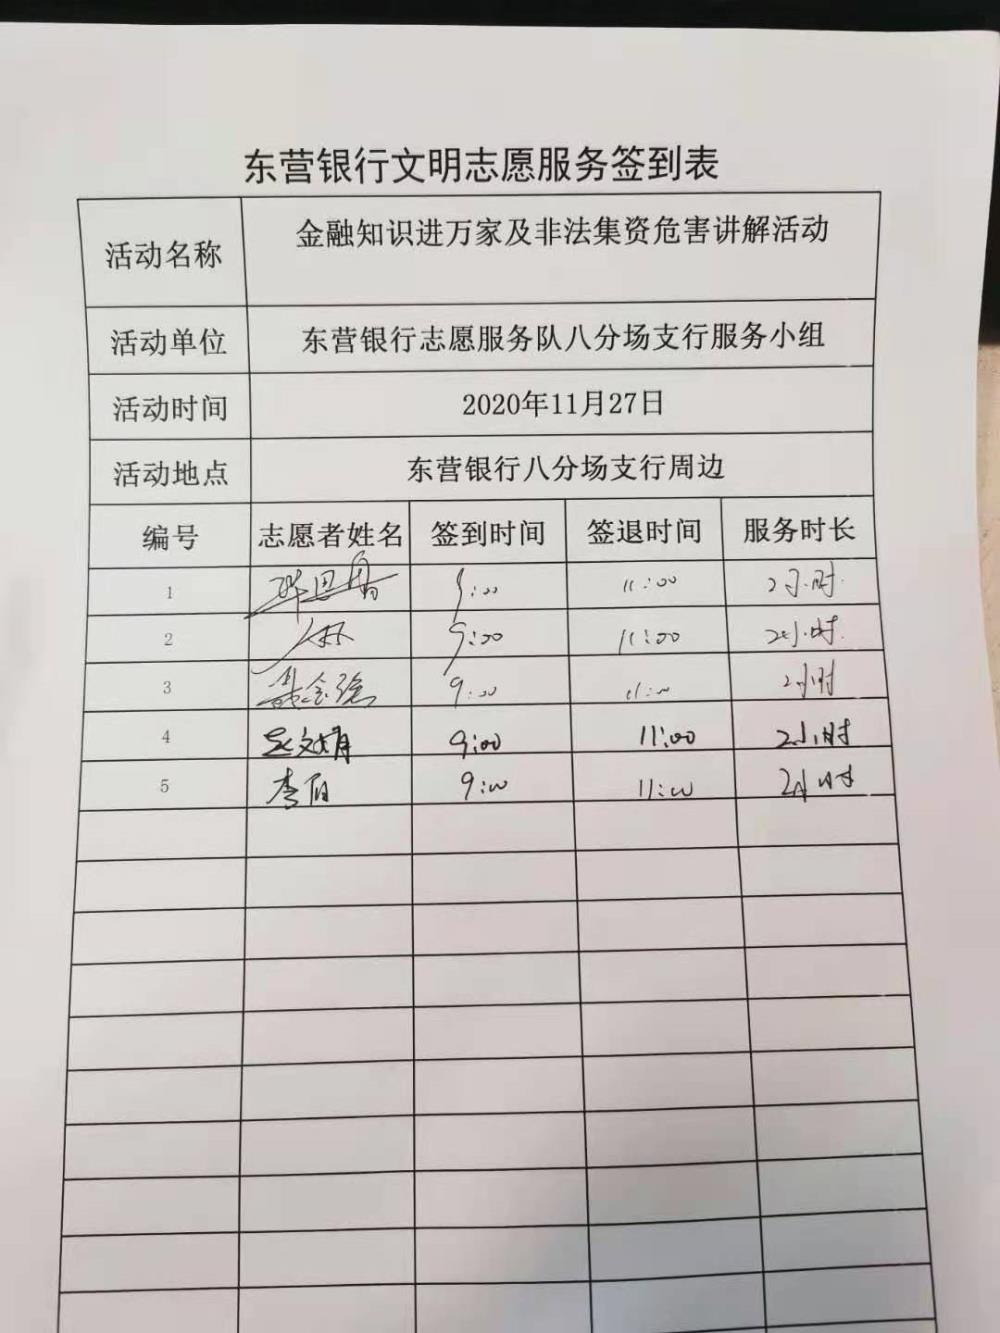 东营银行文明志愿服务签到表
活动名称 金融知识进万家及非法集资危害讲解活动
活动单位 东营银行志愿服务队八分场支行服务小组
活动时间 2020年11月27日
活动地点 东营银行八分场支行周边
编号 志愿者姓名 签到时间 签退时间 服务时长
1 9:00 11:00 2小时
2 9:00 11:00 2小时
3 9:00 11:00 2小时
4 9:00 11:00 2小时
5 9:00 11:00 2小时